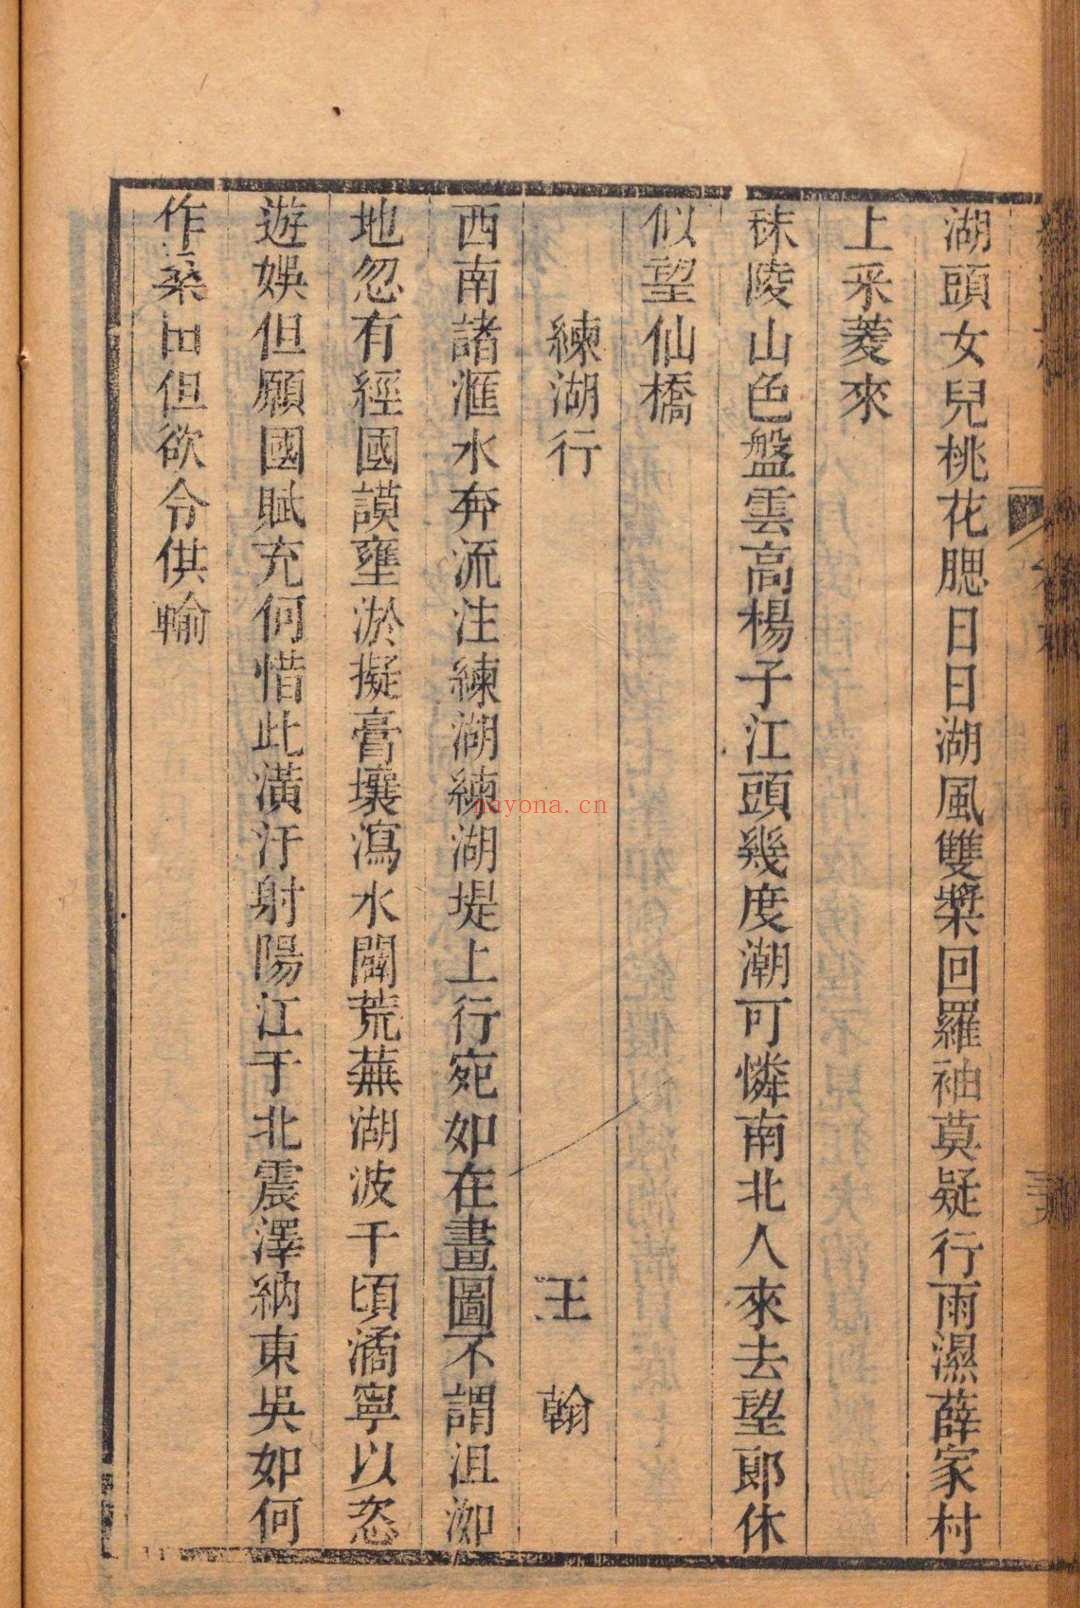 湖頭女兒桃花腮日日湖風雙槳回羅袖莫疑行雨濕薛家村
上采菱來
秣陵山色盤雲高楊子江頭幾度潮可憐南北人來去望郎休
似望仙橋
練湖行 王翰
西南諸滙水奔流注練湖練湖堤上行宛如在畫圖不謂沮洳
地忽有經國謨壅淤擬膏壤瀉水闢荒蕪湖波千頃潏寧以恣
遊娛但願國賦充何惜此潢汙射陽江于北震澤納東吳如何
作桑田但欲令供輸
nayona.cn